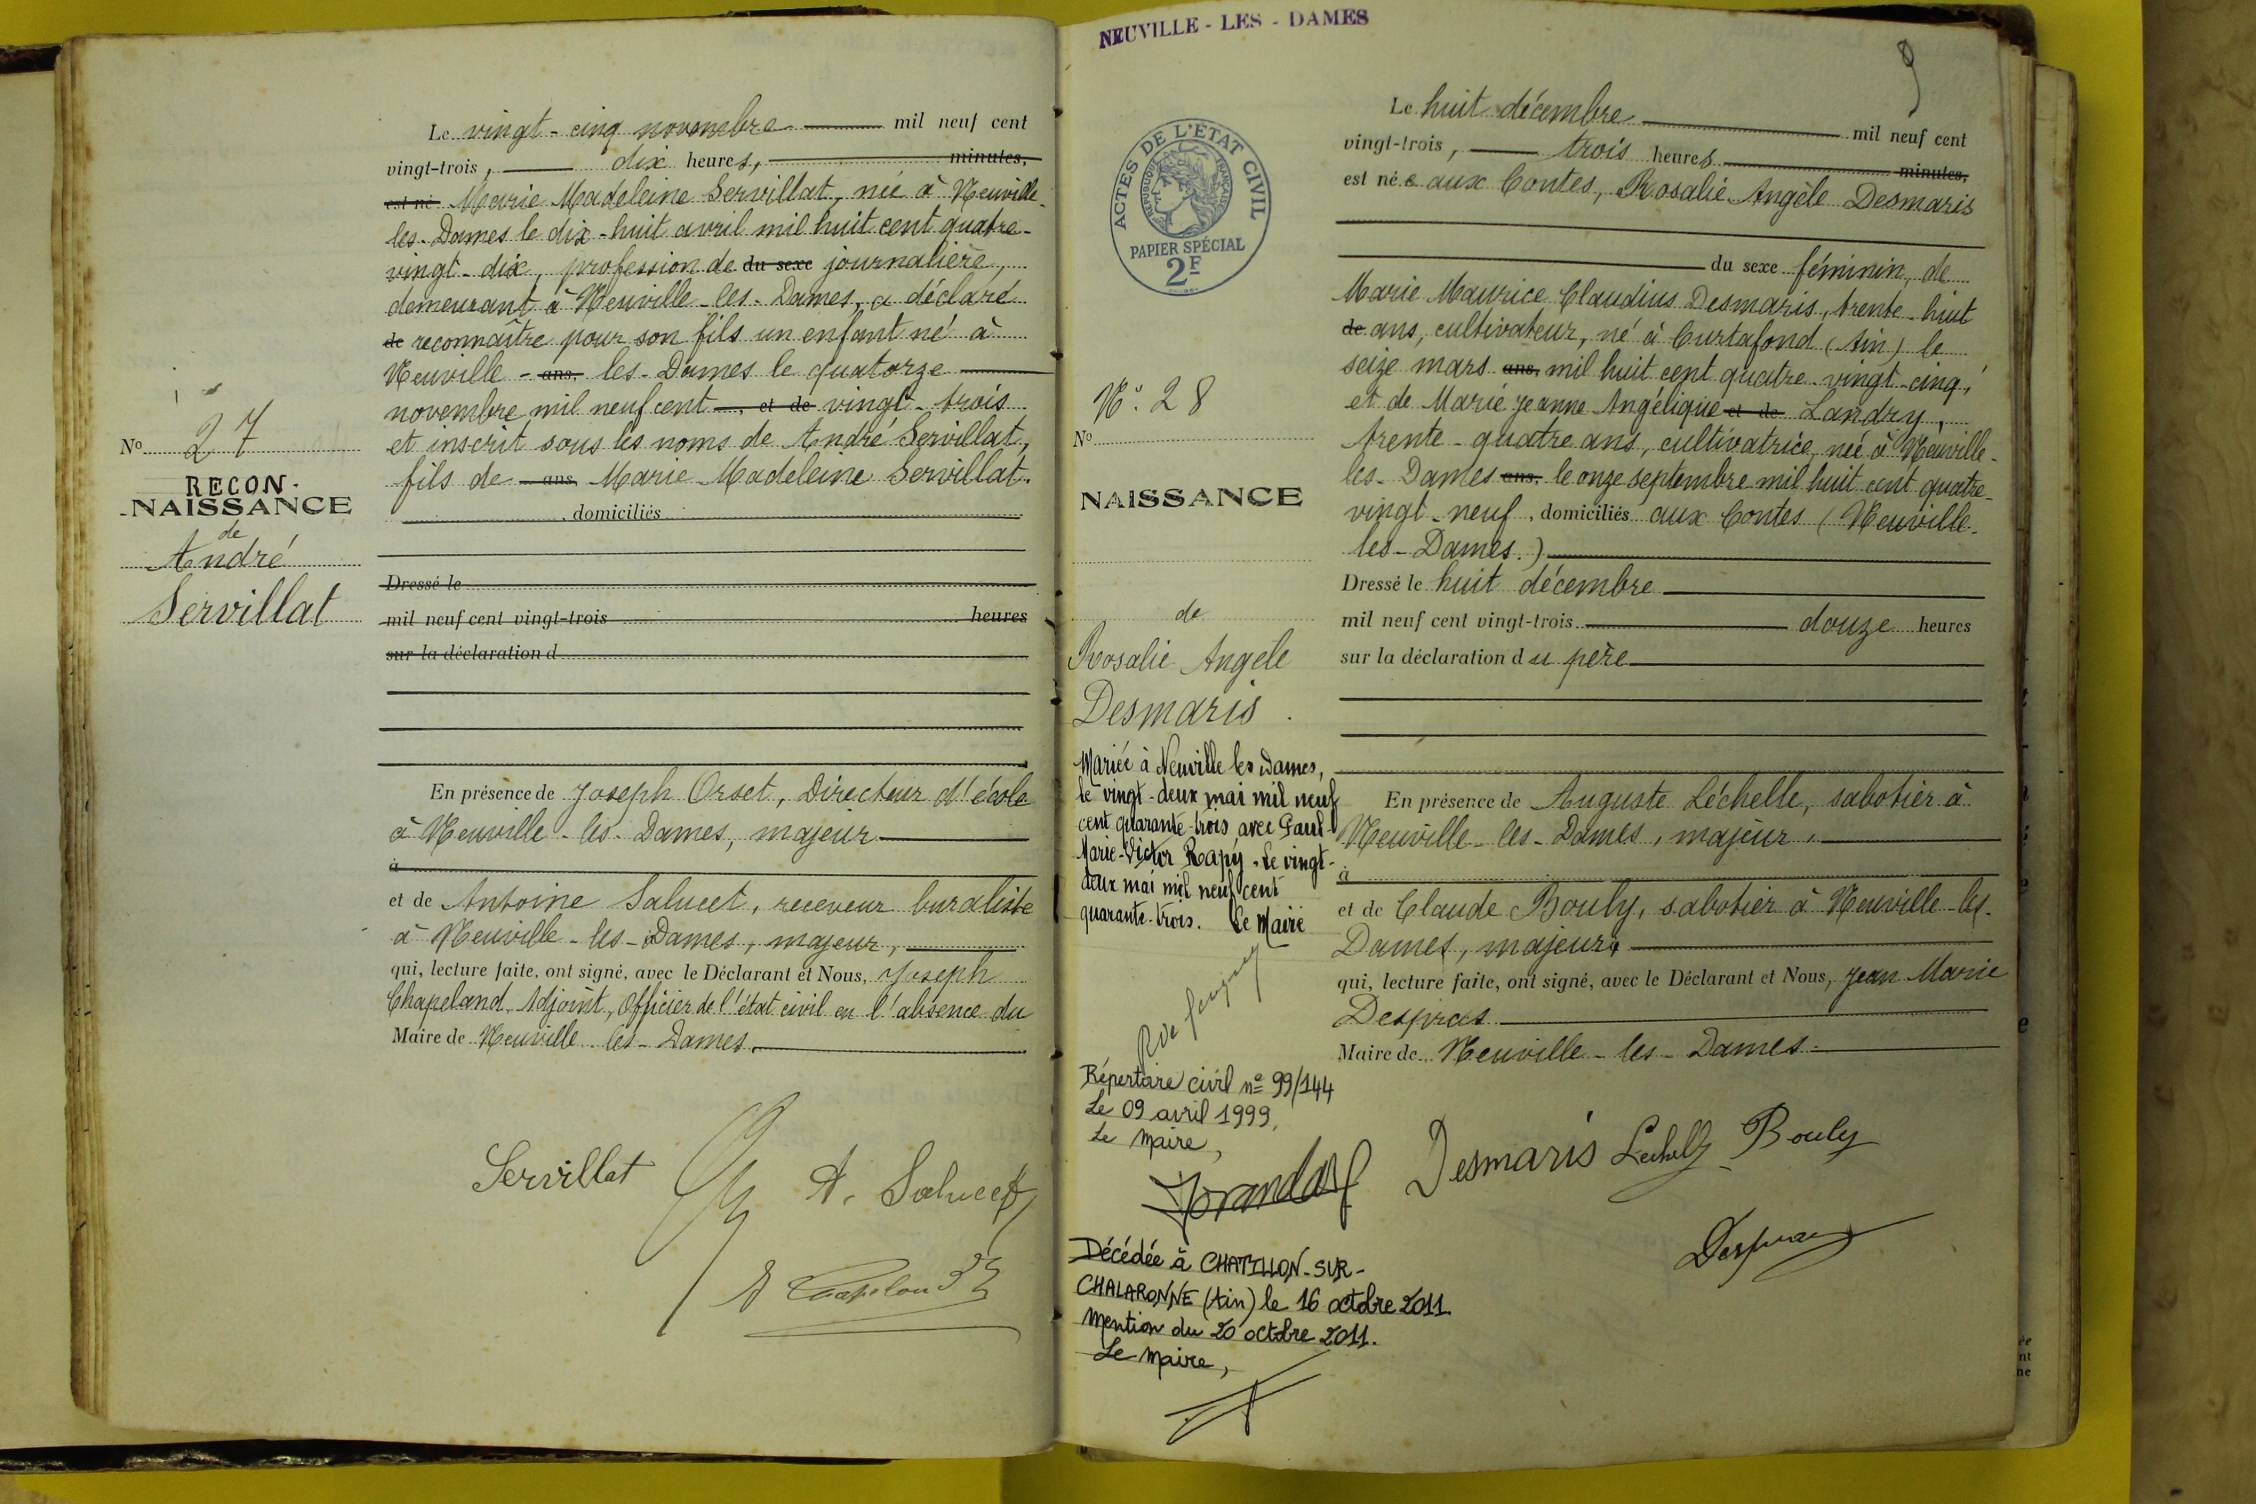 Le vingt-cinq novembre mil neuf cent
vingt-trois, dix heures, minutes,
est né Marie Madeleine Servillat, née à Neuville-
les-Dames le dix-huit avril mil huit cent quatre-
vingt-dix, profession de du sexe journalière,
demeurant à Neuville-les-Dames, a déclaré
de reconnaître pour son fils un enfant né à
Neuville - ans, les-Dames le quatorze
novembre mil neuf cent , et de vingt-trois
et inscrit sous les noms de André Servillat,
fils de ans Marie Madeleine Servillat.
, domiciliés
Dressé le
mil neuf cent vingt-trois heures
sur la déclaration d
En présence de Joseph Orset, Directeur d'école
à Neuville-les-Dames, majeur
à
et de Antoine Salucet, receveur buraliste
à Neuville-les-Dames, majeur,
qui, lecture faite, ont signé, avec le Déclarant et Nous, Joseph
Chapeland, Adjoint, Officier de l'état civil en l'absence du
Maire de Neuville-les-Dames.
Servillat
A. Salucet
No 27
RECON.
NAISSANCE
de
André
Servillat
NEUVILLE - LES - DAMES
9
ACTES DE L'ETAT CIVIL
REPUBLIQUE FRANÇAISE
PAPIER SPÉCIAL
2F
Le huit décembre mil neuf cent
vingt-trois, trois heures minutes,
est née aux Contes, Rosalie Angèle Desmaris
du sexe féminin, de
Marie Maurice Claudius Desmaris, trente-huit
de ans, cultivateur, né à Curtafond (Ain) le
seize mars ans, mil huit cent quatre-vingt-cinq,
et de Marie Jeanne Angélique et de Landry,
trente-quatre ans, cultivatrice, née à Neuville-
les-Dames ans, le onze septembre mil huit cent quatre-
vingt-neuf, domiciliés aux Contes (Neuville-
les-Dames.)
Dressé le huit décembre
mil neuf cent vingt-trois douze heures
sur la déclaration du père
En présence de Auguste Léchelle, sabotier à
Neuville-les-Dames, majeur,
à
et de Claude Bouly, sabotier à Neuville-les-
Dames, majeur,
qui, lecture faite, ont signé, avec le Déclarant et Nous, Jean Marie
Despras
Maire de Neuville-les-Dames.
Desmaris Léchelle Bouly
No. 28
No
NAISSANCE
de
Rosalie Angele
Desmaris.
Mariée à Neuville les Dames,
le vingt-deux mai mil neuf
cent quarante-trois avec Paul-
Marie-Victor Rapy. Le vingt-
deux mai mil neuf cent
quarante-trois. Le Maire
Répertoire civil no 99/144
Le 09 avril 1999,
Le Maire,
Décédée à CHATILLON-SUR-
CHALARONNE (Ain) le 16 octobre 2011.
Mention du 20 octobre 2011.
Le Maire,